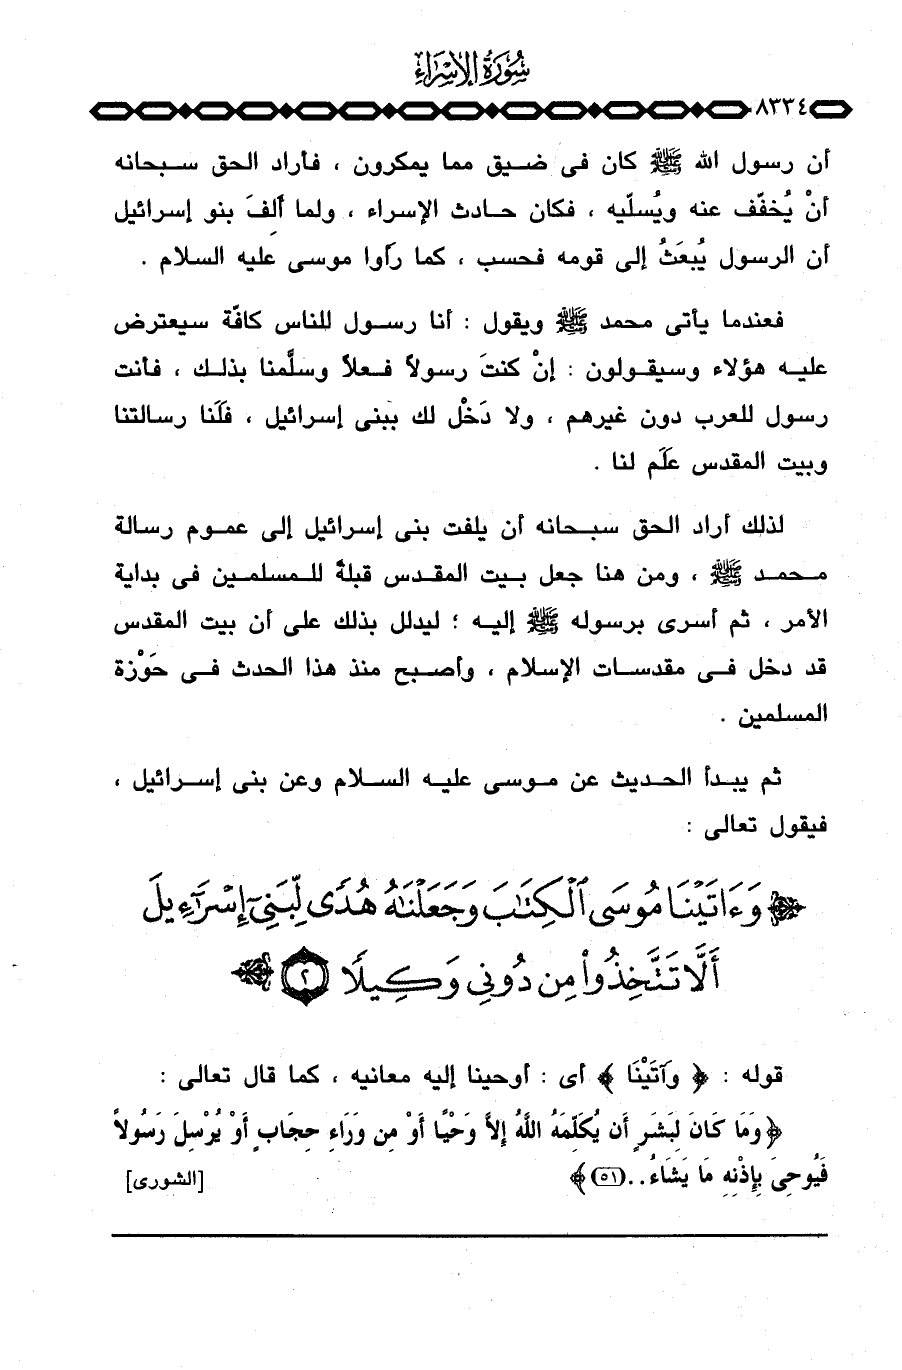 سُورَةُ الإِسْرَاءِ
٨٣٣٤
أن رسول الله ﷺ كان فى ضيق مما يمكرون ، فأراد الحق سبحانه
أنْ يُخفّف عنه ويُسلّيه ، فكان حادث الإسراء ، ولما أَلِفَ بنو إسرائيل
أن الرسول يُبعَثُ إلى قومه فحسب ، كما رأَوا موسى عليه السلام .
فعندما يأتى محمد ﷺ ويقول : أنا رسول للناس كافّة سيعترض
عليه هؤلاء وسيقولون : إنْ كنتَ رسولاً فعلاً وسلَّمنا بذلك ، فأنت
رسول للعرب دون غيرهم ، ولا دَخْل لك ببنى إسرائيل ، فلَنا رسالتنا
وبيت المقدس علَم لنا .
لذلك أراد الحق سبحانه أن يلفت بنى إسرائيل إلى عموم رسالة
محمد ﷺ ، ومن هنا جعل بيت المقدس قبلةً للمسلمين فى بداية
الأمر ، ثم أسرى برسوله ﷺ إليه ؛ ليدلل بذلك على أن بيت المقدس
قد دخل فى مقدسات الإسلام ، وأصبح منذ هذا الحدث فى حَوْزة
المسلمين .
ثم يبدأ الحديث عن موسى عليه السلام وعن بنى إسرائيل ،
فيقول تعالى :
﴿ وَءَاتَيْنَا مُوسَى ٱلْكِتَٰبَ وَجَعَلْنَٰهُ هُدًى لِّبَنِىٓ إِسْرَٰٓءِيلَ
أَلَّا تَتَّخِذُوا۟ مِن دُونِى وَكِيلًا ٢ ﴾
قوله : ﴿ وآتَيْنَا ﴾ أى : أوحينا إليه معانيه ، كما قال تعالى :
﴿ وَمَا كَانَ لِبَشَرٍ أَن يُكَلِّمَهُ اللَّهُ إِلاَّ وَحْيًا أَوْ مِن وَرَاءِ حِجَابٍ أَوْ يُرْسِلَ رَسُولاً
فَيُوحِىَ بِإِذْنِهِ مَا يَشَاءُ .. (٥١) ﴾ [الشورى]